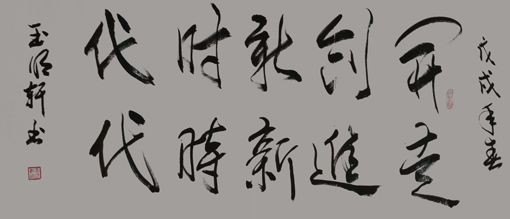 戊戌年春
开创新时代
走進新時代
玉明轩书